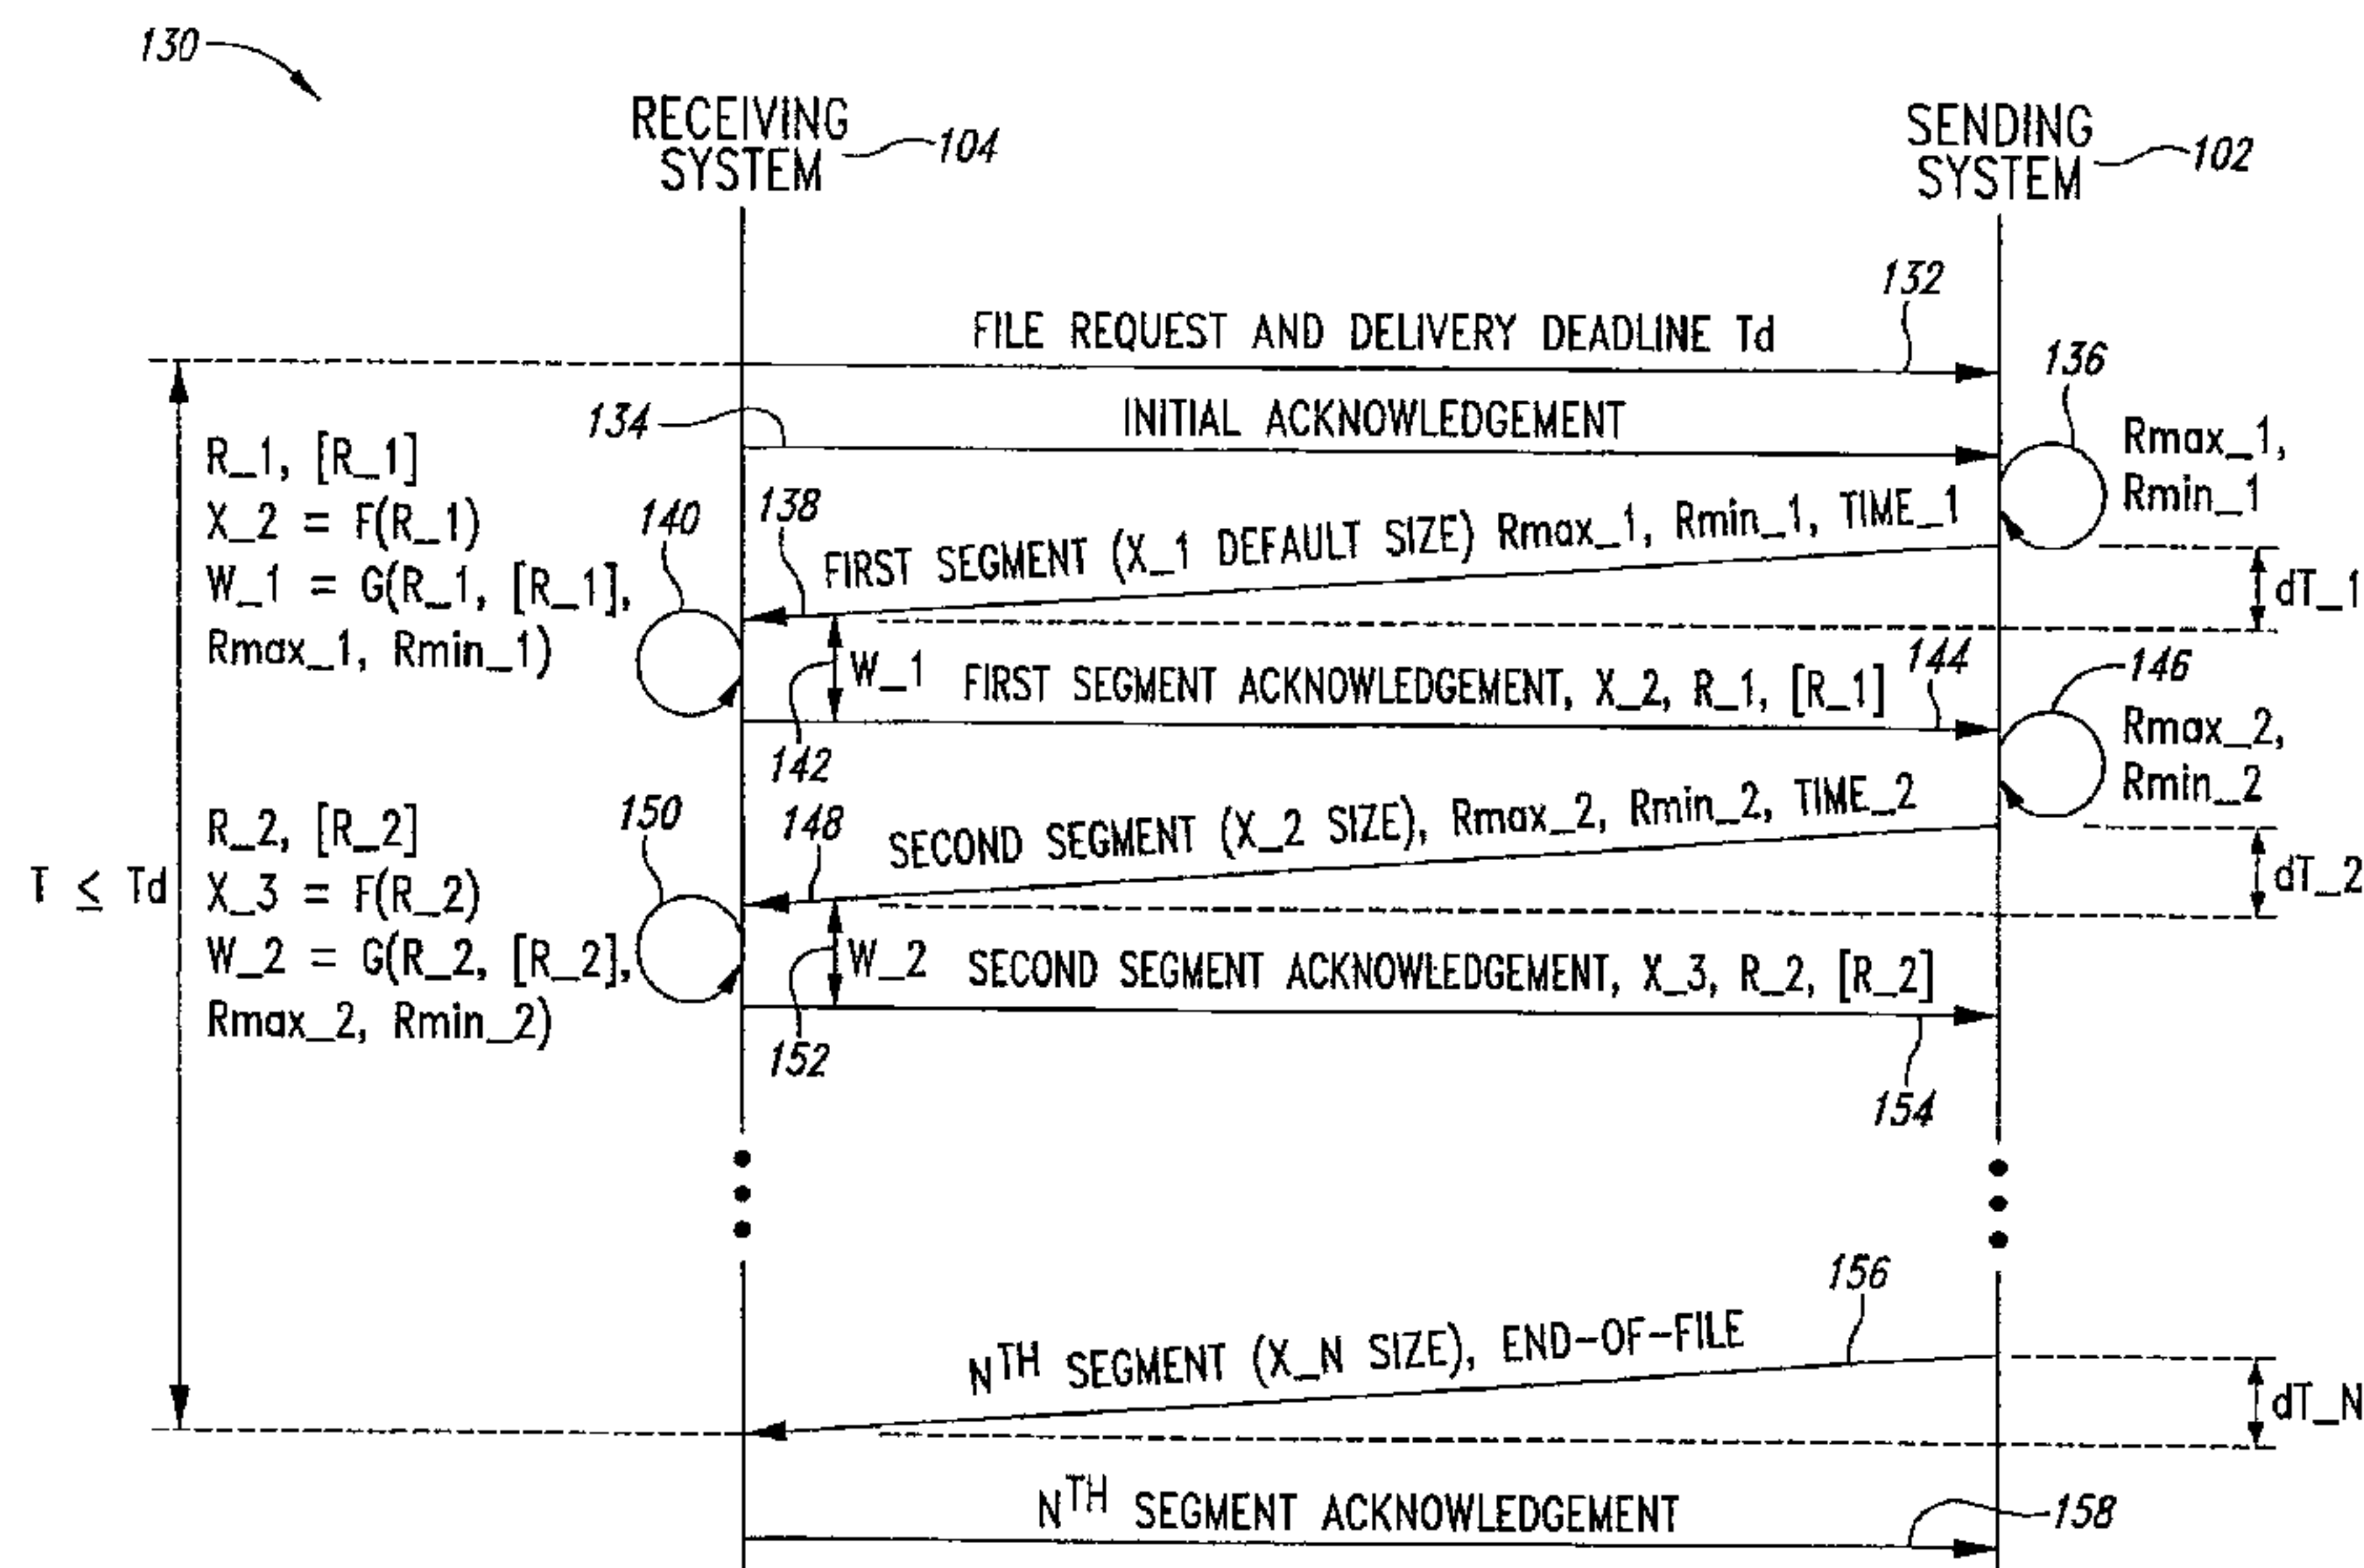 130
RECEIVING
SYSTEM
104
SENDING
SYSTEM
102
FILE REQUEST AND DELIVERY DEADLINE Td
132
134
INITIAL ACKNOWLEDGEMENT
136
Rmax_1,
Rmin_1
R_1, [R_1]
X_2 = F(R_1)
W_1 = G(R_1, [R_1],
Rmax_1, Rmin_1)
140
138
FIRST SEGMENT (X_1 DEFAULT SIZE) Rmax_1, Rmin_1, TIME_1
dT_1
W_1
142
FIRST SEGMENT ACKNOWLEDGEMENT, X_2, R_1, [R_1]
144
146
Rmax_2,
Rmin_2
T ≤ Td
R_2, [R_2]
X_3 = F(R_2)
W_2 = G(R_2, [R_2],
Rmax_2, Rmin_2)
150
148
SECOND SEGMENT (X_2 SIZE), Rmax_2, Rmin_2, TIME_2
dT_2
W_2
152
SECOND SEGMENT ACKNOWLEDGEMENT, X_3, R_2, [R_2]
154
156
NTH SEGMENT (X_N SIZE), END-OF-FILE
dT_N
NTH SEGMENT ACKNOWLEDGEMENT
158